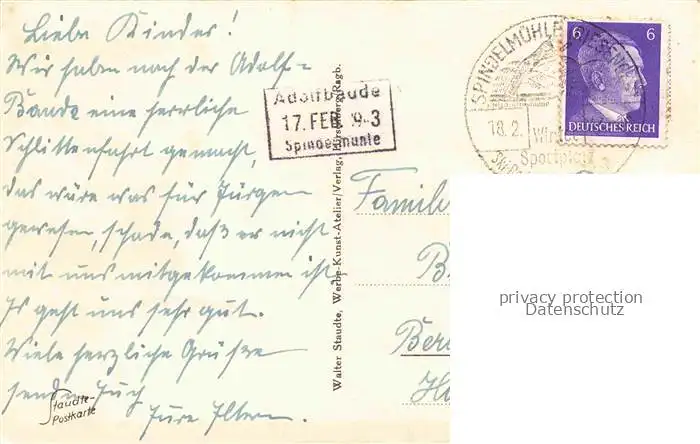 Liebe Kinder!
Wir haben nach der Adolf-
Baude eine herrliche
Schlittenfahrt gemacht,
das wäre was für Jürgen
gewesen, schade, daß er nicht
mit uns mitgekommen ist.
Es geht uns sehr gut.
Viele herzliche Grüße
senden Euch
Eure Eltern.
Staudte-
Postkarte
Adolfbaude
17. FEB. 1943
Spindelmühle
Walter Staudte, Werbe-Kunst-Atelier/Verlag,
SPINDELMÜHLE
18.2.
Winter
Sportplatz
6 6
DEUTSCHES REICH
Famili
B
Ber
privacy protection
Datenschutz